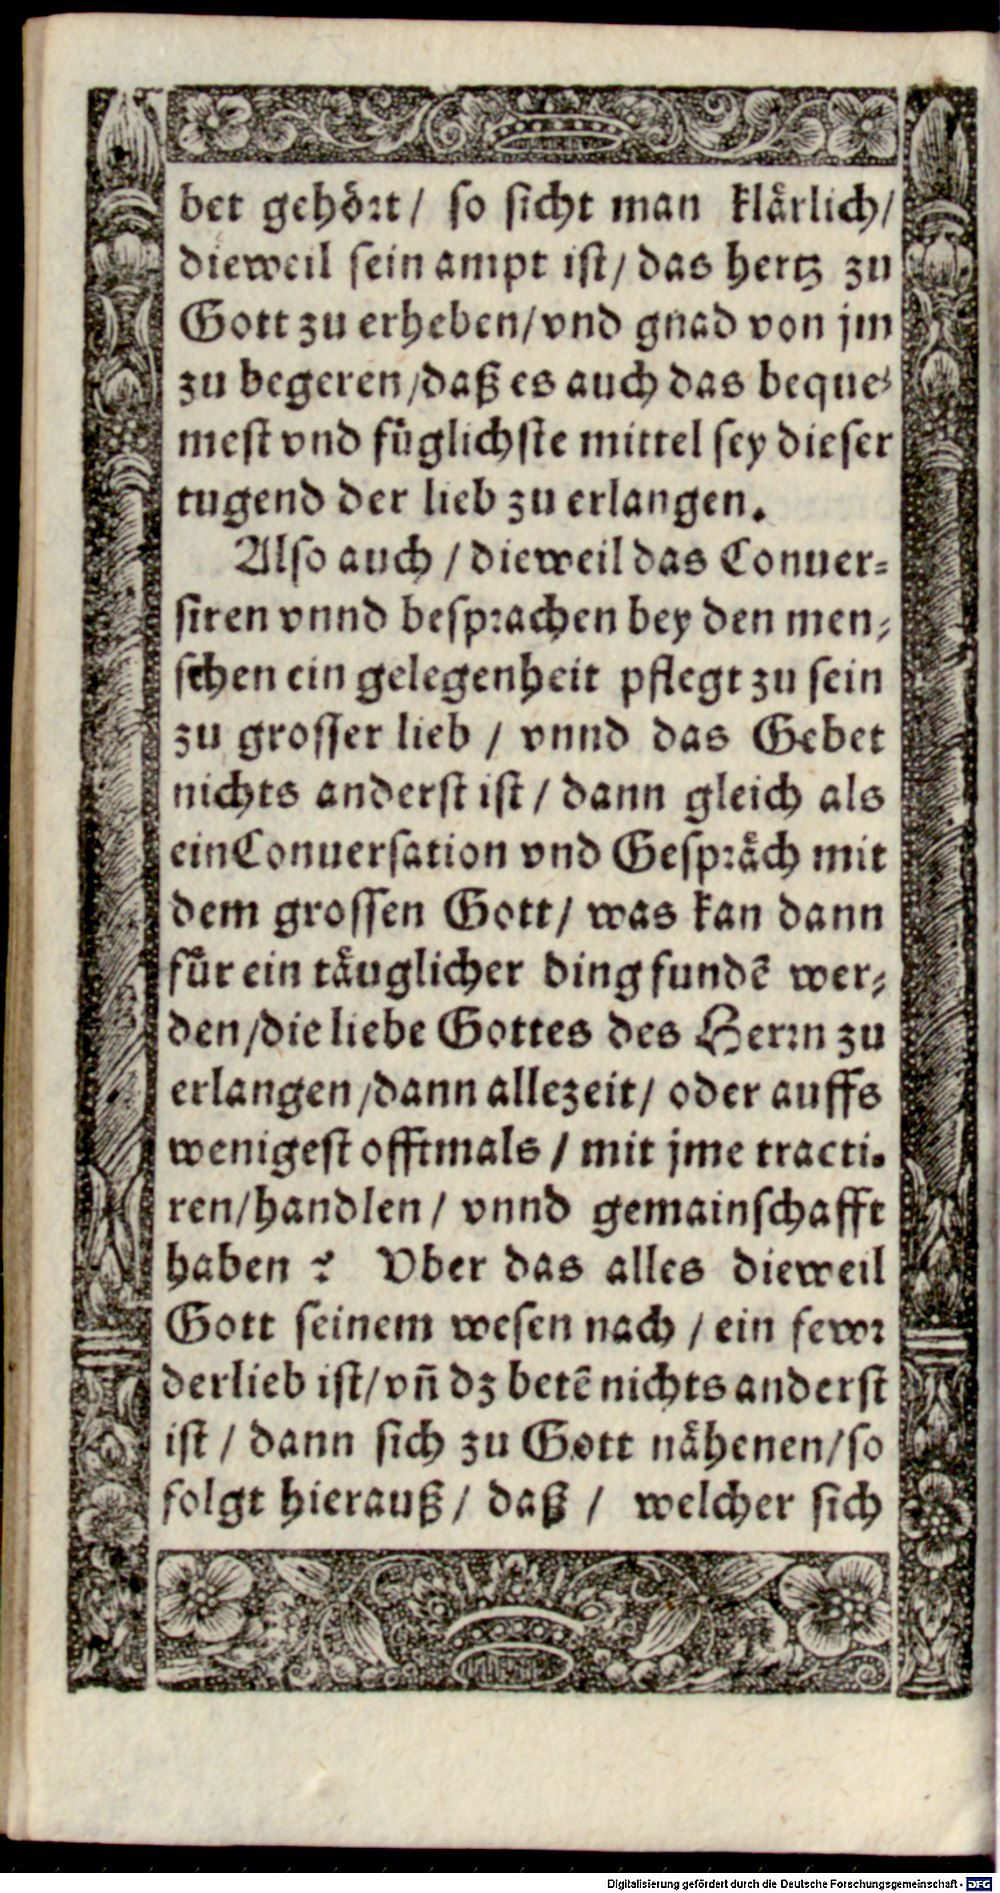 bet gehört / so sicht man klärlich /
dieweil sein ampt ist / das hertz zu
Gott zu erheben / vnd gnad von jm
zu begeren / daß es auch das beque-
mest vnd füglichste mittel sey dieser
tugend der lieb zu erlangen.
Also auch / dieweil das Conuer-
siren vnnd besprachen bey den men-
schen ein gelegenheit pflegt zu sein
zu grosser lieb / vnnd das Gebet
nichts anderst ist / dann gleich als
ein Conuersation vnd Gespräch mit
dem grossen Gott / was kan dann
für ein täuglicher ding fundē wer-
den / die liebe Gottes des Herrn zu
erlangen / dann allezeit / oder auffs
wenigest offtmals / mit jme tracti-
ren / handlen / vnnd gemainschafft
haben ? Vber das alles dieweil
Gott seinem wesen nach / ein fewr
der lieb ist / vñ dz betē nichts anderst
ist / dann sich zu Gott nähenen / so
folgt hierauß / daß / welcher sich
Digitalisierung gefördert durch die Deutsche Forschungsgemeinschaft - DFG